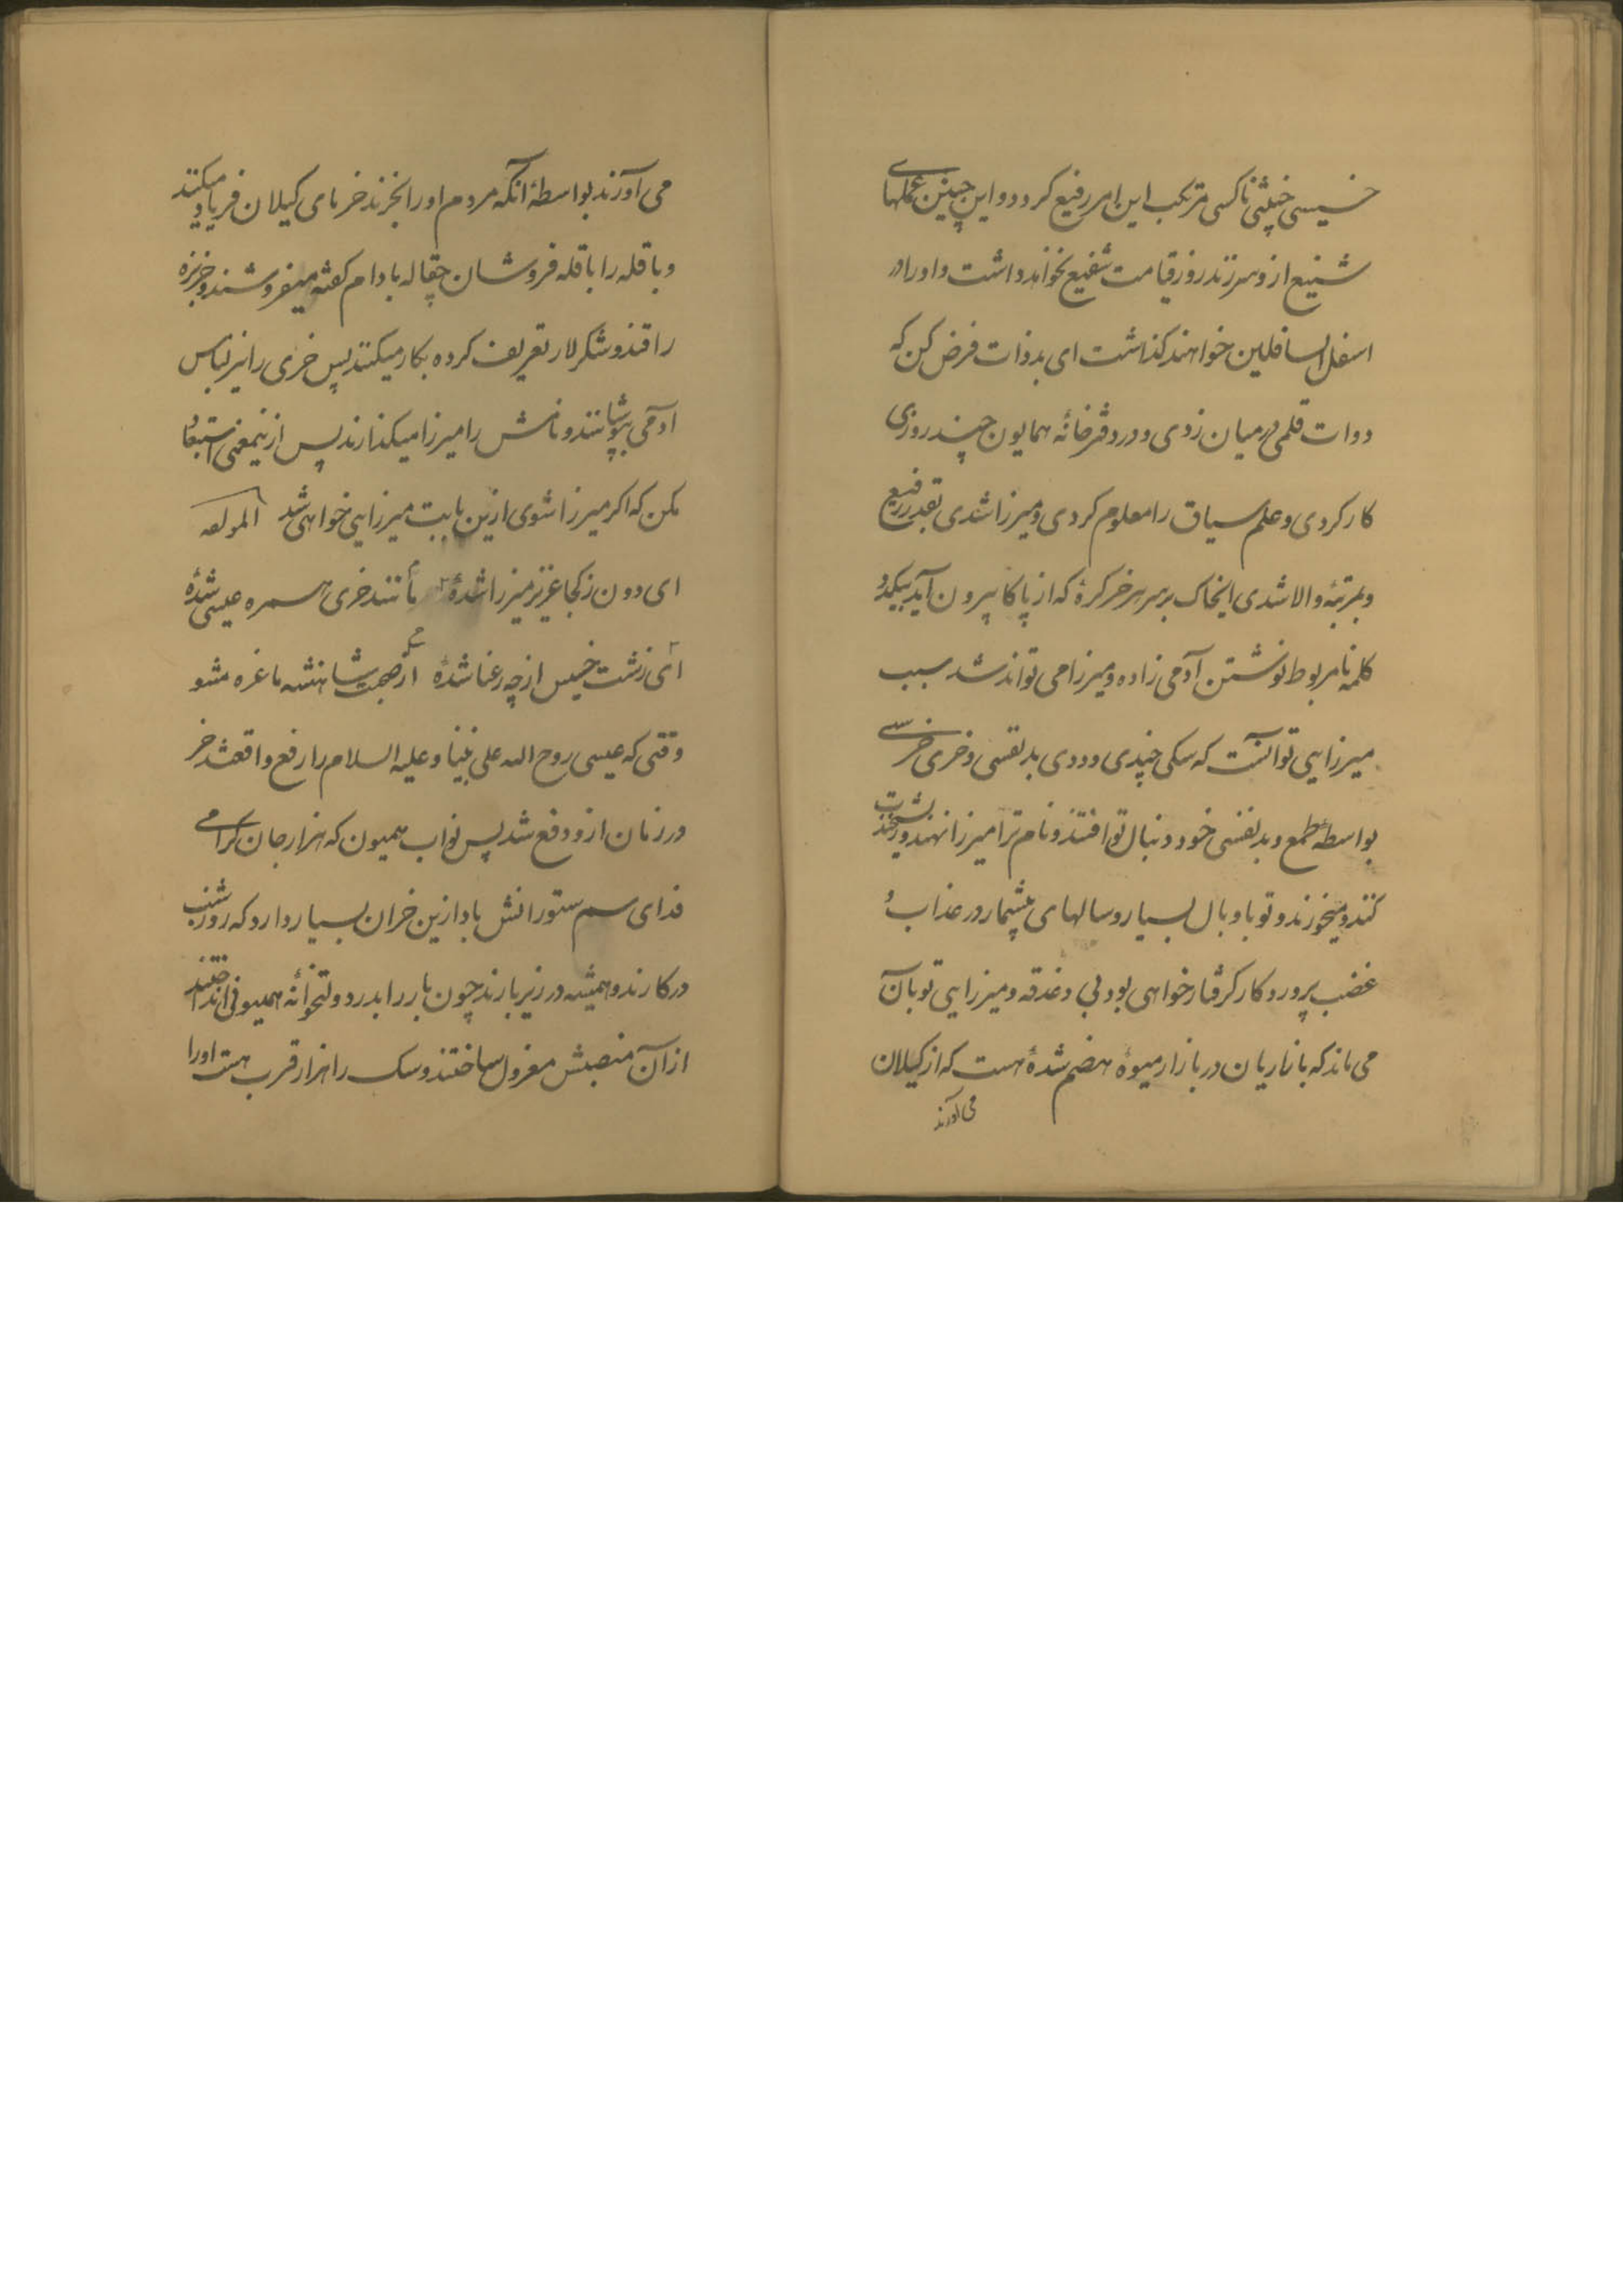 خسیسی خبیثی ناکسی مرتکب این امر رفیع کردد و این چنین عملهای
شنیع ازو سرزند روز قیامت شفیع نخواهد داشت و او را در
اسفل السافلین خواهند کذاشت ای بدذات فرض کن که
دوات قلمی در میان زدی و در دفترخانهٔ همایون چند روزی
کار کردی و علم سیاق را معلوم کردی و میرزا شدی بقدر رفیع
و بمرتبهٔ والا شدی ایخاک بر سر هر خر کرهٔ که از پاکا بیرون آید بیکدو
کلمه نامربوط نوشتن آدمی زاده و میرزا می تواند شد سبب
میرزایی تو آنست که سکی چندی و ددی بدنفسی و خری خرسی
بواسطهٔ طمع و بدنفسی خود دنبال تو افتند و نام ترا میرزا نهند و ریشخندت
کنند و میخورند و تو با وبال بسیار و سالهای بیشمار در عذاب و
غضب پروردکار کرفتار خواهی بود بی دغدقه و میرزایی تو بآن
می ماند که بازاریان در بازار میوهٔ هضم شدهٔ هست که از کیلان
می آورند
می آورند بواسطهٔ آنکه مردم او را بخرند خرمای کیلان فریاد میکنند
و باقله را باقله فروشان چقاله بادام کفته میفروشند و خربزه
را قند و شکر لار تعریف کرده بکار میکنند پس خری را نیز لباس
آدمی بپوشانند و نامش را میرزا میکذارند پس ازینمعنی استبعاد
مکن که اکر میرزا شوی ازین بابت میرزایی خواهی شد المولفه
ای دون زکجا عزیز میرزا شدهٔ مانند خری همره عیسی شدهٔ
ای زشت خسیس از چه رعنا شدهٔ از صحبت شاهنشه ما غره مشو
وقتی که عیسی روح الله علی نبینا و علیه السلام را رفع واقعشد خر
در زمان ازو دفع شد پس نواب همیون که هزار جان کرامی
فدای سم ستورانش باد ازین خران بسیار دارد که روز شب
در کارند و همیشه در زیر بارند چون بار را بدر دولتخوانهٔ همیونی انداختند
از آن منصبش معزول ساختند و سک را هزار قرب هست او را